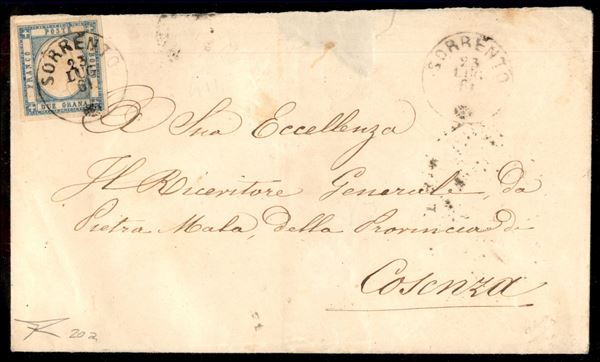 FRANCO POSTE BOLLO
DUE GRANA
SORRENTO
23
LUG
61
SORRENTO
23
LUG
61
A Sua Eccellenza
Il Ricevitore Generale, da
Pietra Mala, della Provincia di
Cosenza